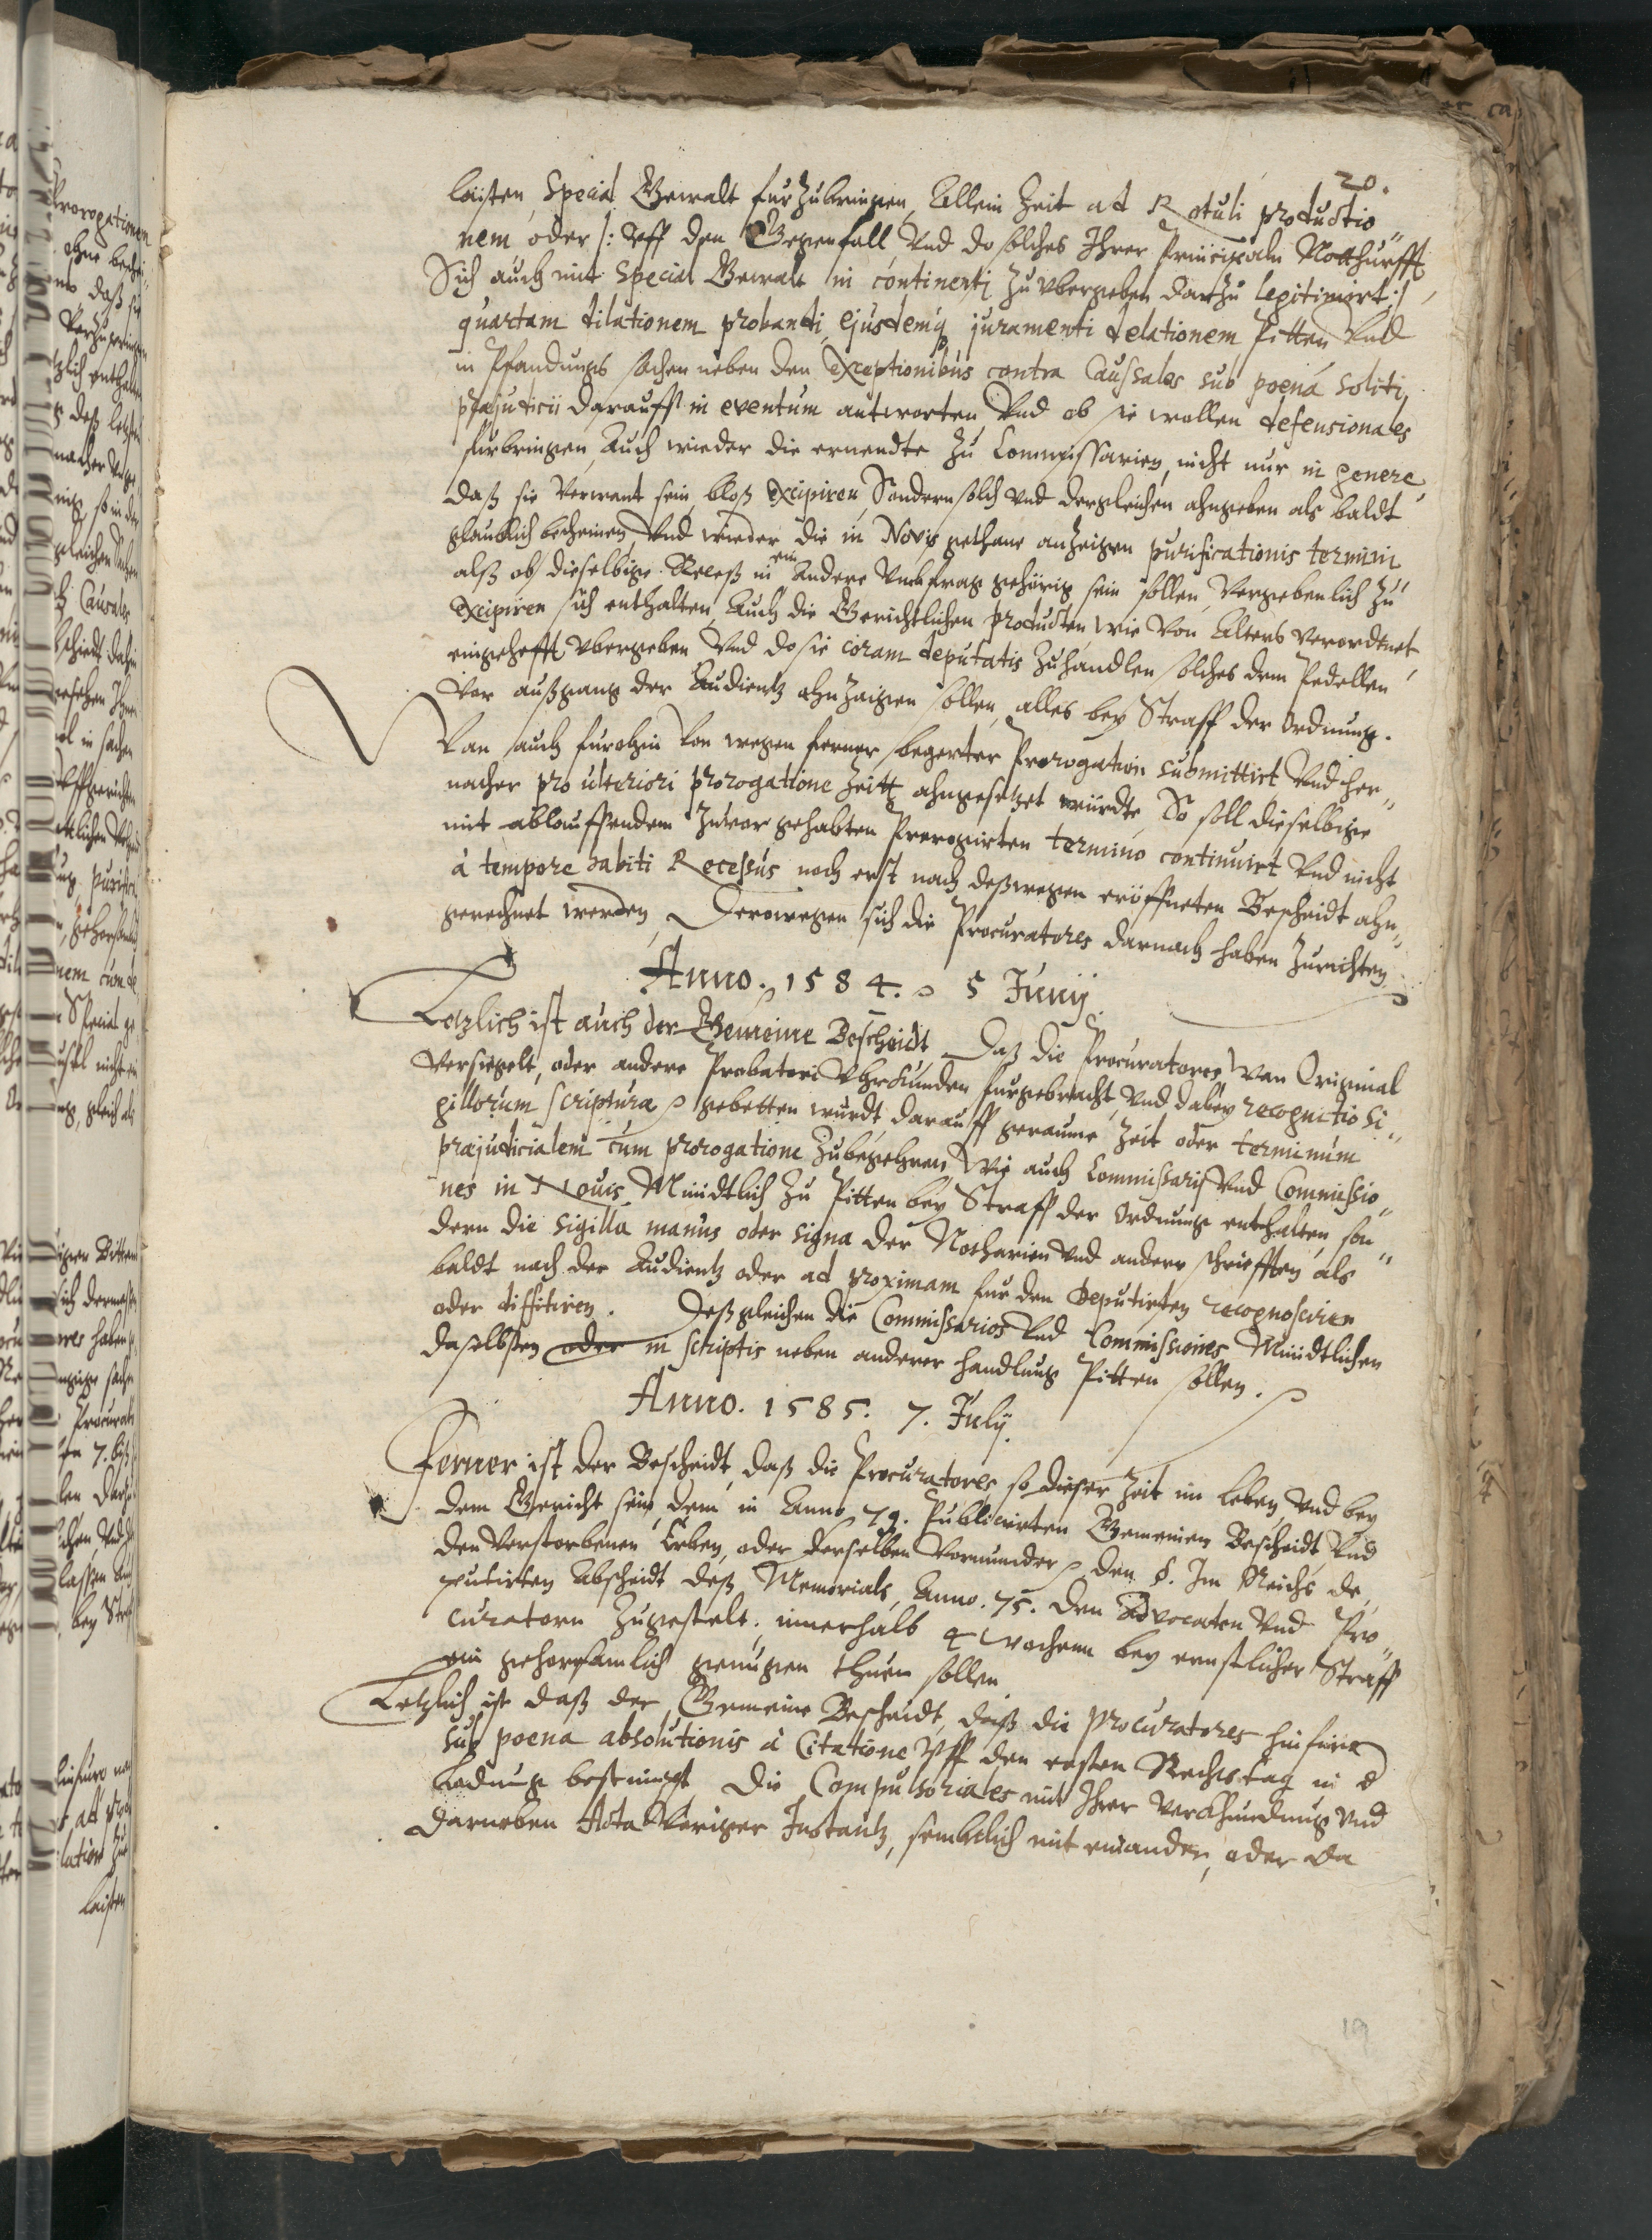 20.
laisten, Special Gewalt furzubringen, Allein Zeit ad Rotuli productio„
nem oder /: Vff den Gegenfall Vnd do solches Ihrer Principaln Notthurfft
Sich auch mit Special Gewalt in continenti zu vbergeben dartzu legitimirt :/
quartam dilationem probandi, ejusdemq juramenti delationem Pitten Vnd
in Pfandungs sachen neben den Exceptionibus contra Caussales sub poena soliti
præjudicii darauff in eventum antworten Vnd ob sie wollen defensionales
furbringen, Auch wieder die ernendte zu Commissarien, nicht nur in genere
daß sie Verwant sein, bloß Excipiren, Sondern solch vnd dergleichen ahngeben als baldt
glaublich becheinen, Vnd wieder die in Novis gethane anzeigen purificationis termini
alß ob dieselbige Receß in ein Andere Vmbfrag gehörig sein sollen, Vergebenlich zu
Excipiren sich enthalten, Auch die Gerichtlichen Producten wie Von Alters Verordtnet
eingehefft vbergeben Vnd do sie coram deputatis zuhandlen solches dem Pedellen
Vor außgang der Audientz ahnzaigen sollen, alles bey Straff der Ordnung.
Van auch furohin Von wegen ferner begerter Prorogation submittirt, Vnd her„
nacher pro ulteriori prorogatione Zeitt ahngesetzet würdte, So soll dieselbige
mit ablauffendem Zuvor gehabten Prorogirten termino continuirt Vnd nicht
à tempore habiti Recessus noch erst nach deßwegen eröffneten Bescheidt ahn„
gerechnet werden, Derowegen sich die Procuratores darnach haben Zurichten
Anno. 1584. 5 Junij.
Letzlich ist auch der Gemeine Bescheidt, Daß die Procuratores Wan Original
Versiegelt, oder andere Probatori Vhrkunden furgebracht, Vnd dabey recognitio si„
gillorum scriptura gebetten wurdt, darauff geraume Zeit oder terminum
præjudicialem cum prorogatione Zubegehren, Wie auch Commissaris Vnd Commissio„
nes in Nouis Mündtlich zu Pitten bey Straff der Ordnung enthalten, son„
dern die sigilla manus oder signa der Notharien Vnd andere schriefften als
baldt nach der Audientz oder ad proximam fur den Deputirten recognosciren
oder diffitiren. Deßgleichen die Commissarios Vnd Commissiones Mündtlichen
daselbsten oder in scriptis neben anderer handlung Pitten sollen.
Anno. 1585. 7. July.
Ferner ist der Bescheidt, daß die Procuratores, so dieser Zeit im Leben, Vnd bey
dem Gericht sein, dem in Anno 79. Publicirten Gemeinen Bescheidt, Vnd
den Verstorbenen Erben, oder derselben Vormünder den §. Im Reichs de„
putirten Abscheidt deß Memorials, Anno. 75. den Advocaten Vnd Pro„
curatorn Zugestelt. innerhalb 4 Wochenn bey ernstlicher Straff
ein gehorsamlich genügen thuen sollen
Letzlich ist daß der Gemeine Bescheidt, daß die Procuratores hinfüro
sub poena absolutionis à Citatione Vff den ersten Rechtstag in d
Ladung bestimpt die Compulsoriales mit Ihrer Verkhundung Vnd
darneben Acta Voriger Instantz, sembtlich mit einander, oder da
19